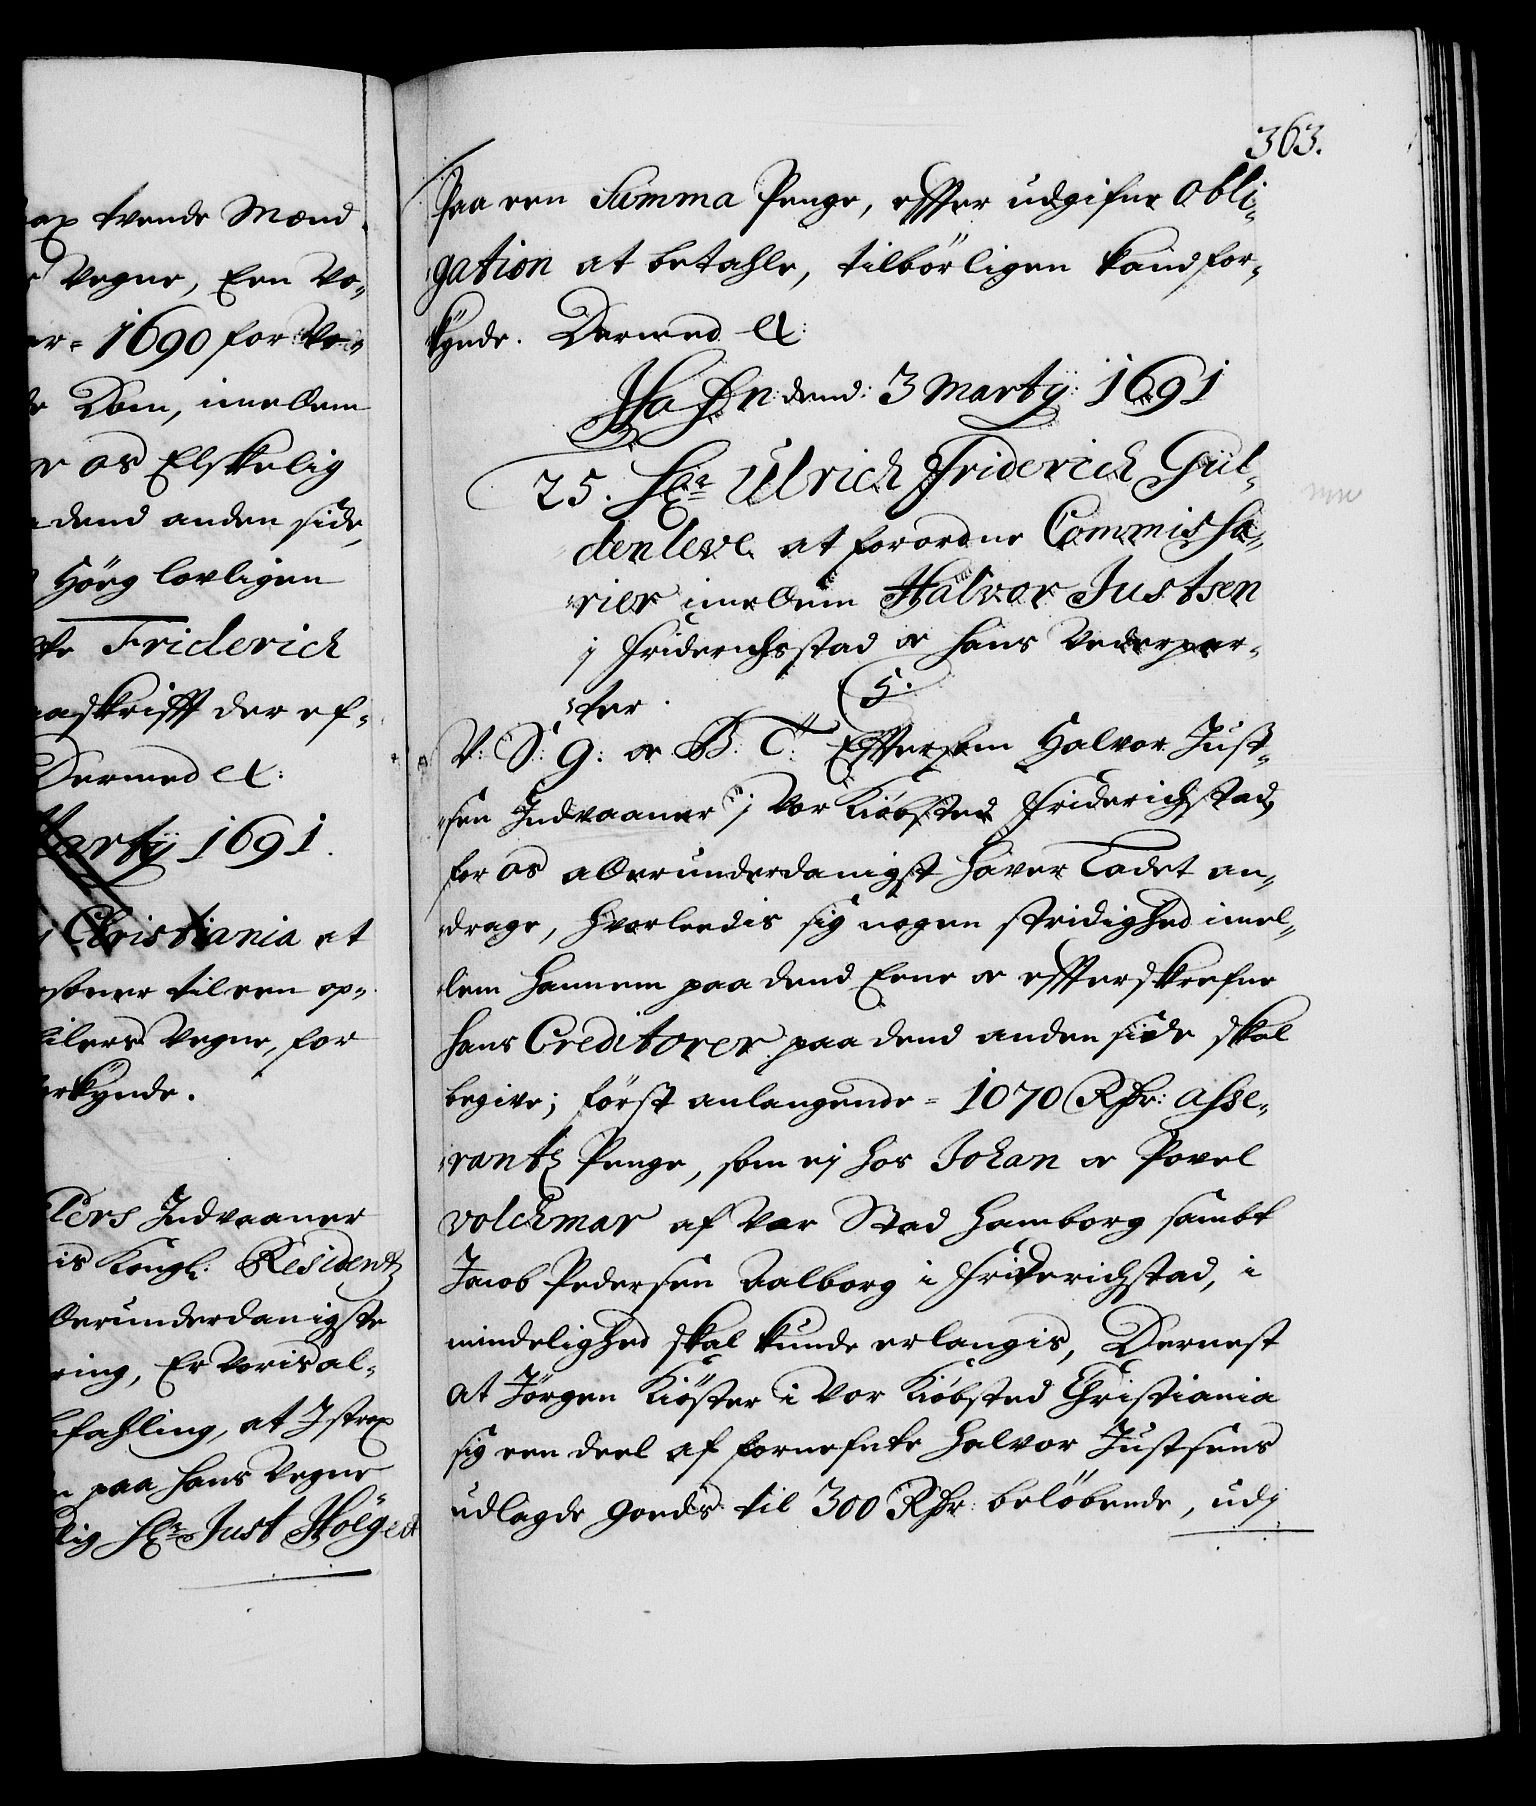 ax tvende Mænd
Vegne, Een Vo-
er- 1690 for Vo-
de Dom, imellem
or os Elskelig
dend anden side,
Høyg lovligen
te Friderich
aaskrifft der ef-
Dermed etc:
Martÿ 1691.
i Christiania at
til een op-
Vegne, for
erkÿnde.
lers Indvaaner
is Kongl: Residentz
llerunderdanigste
ring, Er Voris al-
befahling, at I strax
paa hans Vegne
lig Hr: Just Höeg et
363.
Paa een Summa Penge, effter udgifne Obli-
gation at betahle, tilbörligen kand for-
kÿnde. Dermed etc:
Hafn dend: 3 Martÿ: 1691
25. Hr: Ulrich Friderich Gul-
denleve at forordne Commissa-
rier imellem Halvor Justsen
j Friderichsstad oc hans Vederpar-
ter.
5.
V: S: G: oc B: T: Efftersom Halvor Just-
sen Indvaaner j Vor Kiöbsted Friderichstad,
for os allerunderdanigst haver Ladet an-
drage, hvorleedis sig nogen stridighed imel-
lem hannem paa dend Eene oc effterskrefne
hans Creditorer paa dend anden side skal
begive; först anlangende- 1070 Rdr: Asse-
rantz Penge, som ej hos Johan oc Povel
Volckmar af Vor Stad Hamborg sambt
Jacob Pedersen Aalborg i Friderichstad, i
mindelighed skal kunde erlangis, Dernest
at Jörgen Kiöster i Vor Kiöbsted Christiania
sig een deel af fornefnte Halvor Justsens
udlagde goeds til 300 Rdr: belöbende, udj